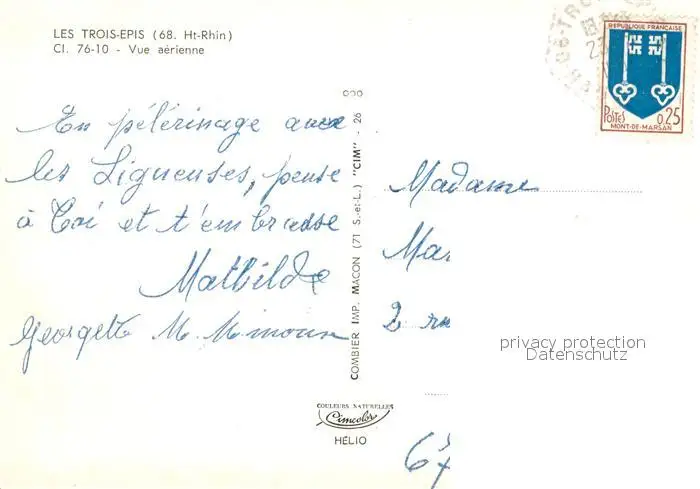 LES TROIS-EPIS (68. Ht-Rhin)
Cl. 76-10 - Vue aérienne
En pélérinage avec
les Ligueuses, pense
à Toi et t'embrasse
Mathilde
Georgette M.
COMBIER IMP. MACON (71 S.-et-L.) "CIM" - 26
COULEURS NATURELLES
Cimcolor
HÉLIO
REPUBLIQUE FRANÇAISE
POSTES 0,25
MONT-DE-MARSAN
Madame
Ma
2 ru
67
privacy protection
Datenschutz